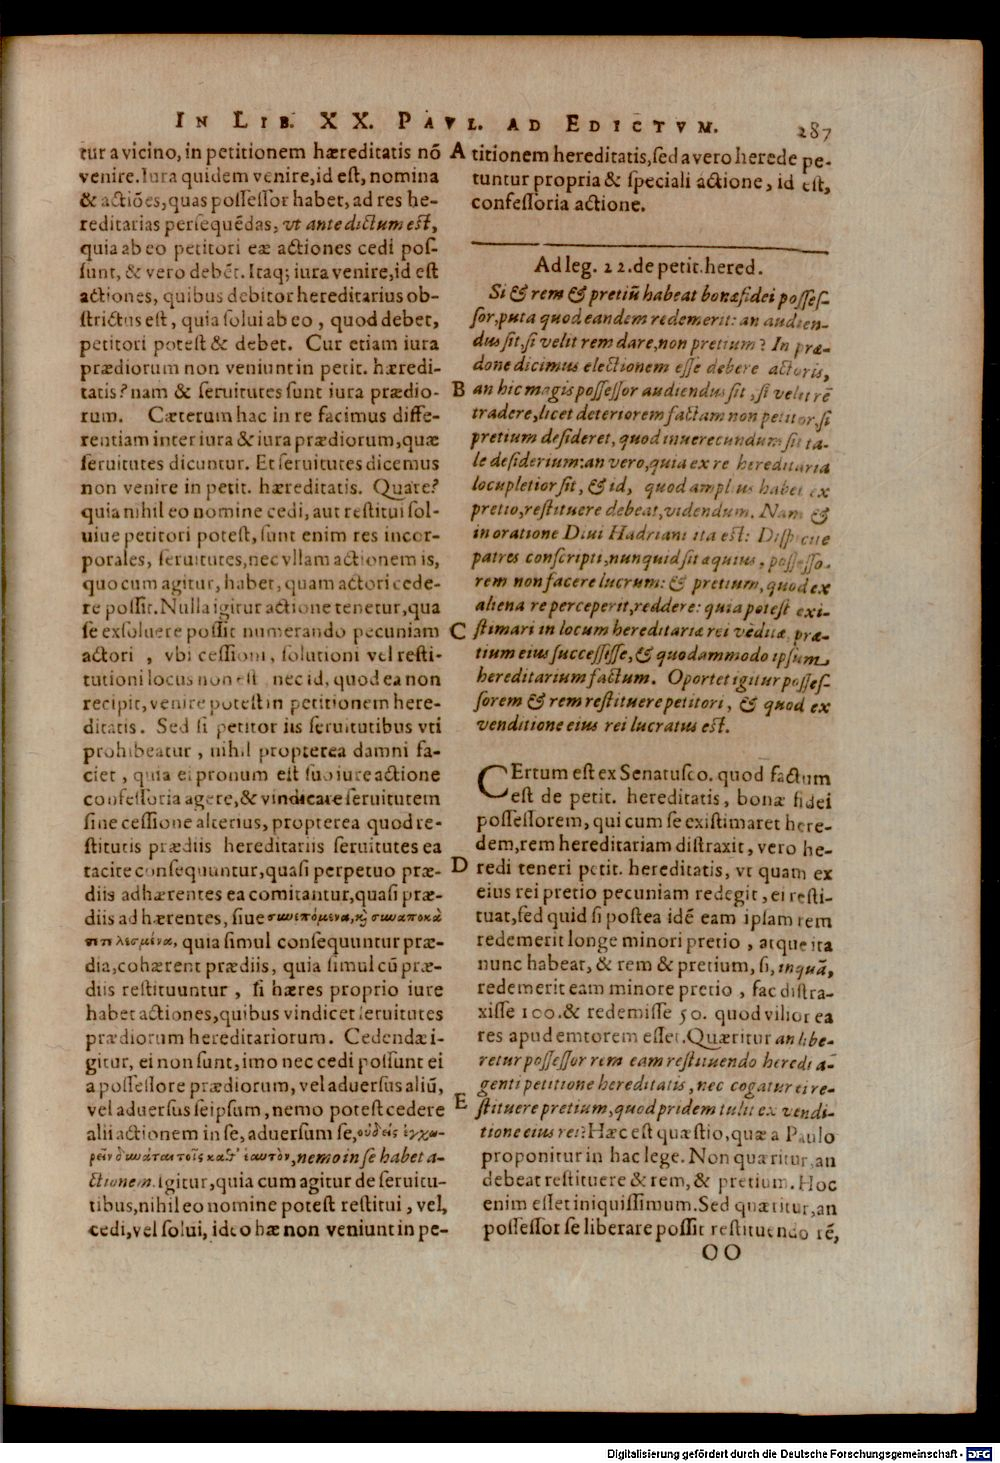 IN LIB. XX. PAVL. AD EDICTVM. 287
tur a vicino, in petitionem hæreditatis nõ
venire. Iura quidem venire, id est, nomina
& actiões, quas possessor habet, ad res he-
reditarias persequẽdas, vt ante dictum est,
quia ab eo petitori eæ actiones cedi pos-
sunt, & vero debẽt. Itaq; iura venire, id est
actiones, quibus debitor hereditarius ob-
strictus est, quia solui ab eo, quod debet,
petitori potest & debet. Cur etiam iura
prædiorum non veniunt in petit. hæredi-
tatis? nam & seruitutes sunt iura prædio-
rum. Cæterum hac in re facimus diffe-
rentiam inter iura & iura prædiorum, quæ
seruitutes dicuntur. Et seruitutes dicemus
non venire in petit. hæreditatis. Quare?
quia nihil eo nomine cedi, aut restitui sol-
uiue petitori potest, sunt enim res incor-
porales, seruitutes, nec vllam actionem is,
quo cum agitur, habet, quam actori cede-
re possit. Nulla igitur actione tenetur, qua
se exsoluere possit numerando pecuniam
actori, vbi cessioni, solutioni vel resti-
tutioni locus non est, nec id, quod ea non
recipit, venire potest in petitionem here-
ditatis. Sed si petitor iis seruitutibus vti
prohibeatur, nihil propterea damni fa-
ciet, quia ei pronum est suo iure actione
confessoria agere, & vindicare seruitutem
sine cessione alterius, propterea quod re-
stitutis prædiis hereditariis seruitutes ea
tacite consequuntur, quasi perpetuo præ-
diis adhærentes ea comitantur, quasi præ-
diis adhærentes, siue
quia simul consequuntur præ-
dia, cohærent prædiis, quia simul cũ præ-
diis restituuntur, si hæres proprio iure
habet actiones, quibus vindicet seruitutes
prædiorum hereditariorum. Cedendæ i-
gitur, ei non sunt, imo nec cedi possunt ei
a possessore prædiorum, vel aduersus aliũ,
vel aduersus seipsum, nemo potest cedere
alii actionem in se, aduersum se,
nemo in se habet a-
ctionem. Igitur, quia cum agitur de seruitu-
tibus, nihil eo nomine potest restitui, vel,
cedi, vel solui, ideo hæ non veniunt in pe-
A titionem hereditatis, sed a vero herede pe-
tuntur propria & speciali actione, id est,
confessoria actione.
Ad leg. 22. de petit. hered.
Si & rem & pretiũ habeat bonæ fidei posses-
sor, puta quod eandem redemerit: an audien-
dus sit, si velit rem dare, non pretium? In præ-
done dicimus electionem esse debere actoris,
B an hic magis possessor audiendus sit, si velit rẽ
tradere, licet deteriorem factam non petitor, si
pretium desideret, quod inuerecundum sit ta-
le desiderium: an vero, quia ex re hereditaria
locupletior sit, & id, quod amplius habet ex
pretio, restituere debeat, videndum. Nam &
in oratione Diui Hadriani ita est: Dispicite
patres conscripti, nunquid sit æquius, possesso-
rem non facere lucrum: & pretium, quod ex
aliena re perceperit, reddere: quia potest exi-
C stimari in locum hereditariæ rei vẽditæ præ-
tium eius successisse, & quodammodo ipsum
hereditarium factum. Oportet igitur posses-
sorem & rem restituere petitori, & quod ex
venditione eius rei lucratus est.
CErtum est ex Senatusco. quod factum
est de petit. hereditatis, bonæ fidei
possessorem, qui cum se existimaret here-
dem, rem hereditariam distraxit, vero he-
D redi teneri petit. hereditatis, vt quam ex
eius rei pretio pecuniam redegit, ei resti-
tuat, sed quid si postea idẽ eam ipsam rem
redemerit longe minori pretio, atque ita
nunc habeat, & rem & pretium, si, inquã,
redemerit eam minore pretio, fac distra-
xisse 100. & redemisse 50. quod vilior ea
res apud emtorem esset. Quæritur an libe-
retur possessor rem eam restituendo heredi a-
genti petitione hereditatis, nec cogatur ei re-
E stituere pretium, quod pridem tulit ex vendi-
tione eius rei? Hæc est quæstio, quæ a Paulo
proponitur in hac lege. Non quæritur, an
debeat restituere & rem, & pretium. Hoc
enim esset iniquissimum. Sed quæritur, an
possessor se liberare possit restituendo rẽ,
OO
Digitalisierung gefördert durch die Deutsche Forschungsgemeinschaft - DFG